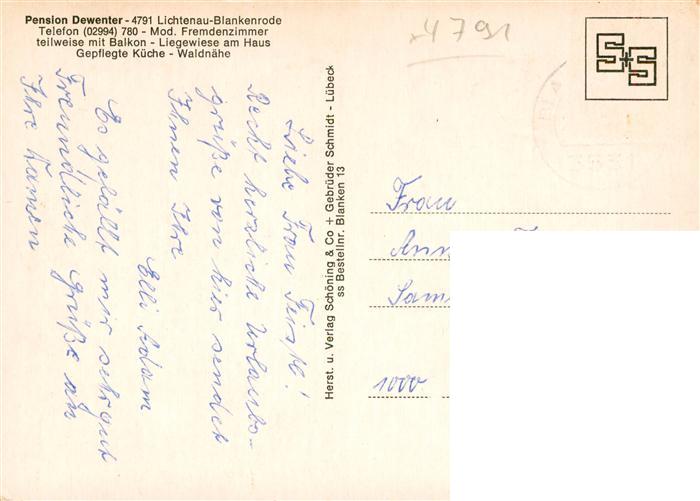 Pension Dewenter - 4791 Lichtenau-Blankenrode
Telefon (02994) 780 - Mod. Fremdenzimmer
teilweise mit Balkon - Liegewiese am Haus
Gepflegte Küche - Waldnähe
x4791
S+S
Liebe Frau
Recht herzliche Urlaubs-
grüße von hier sendet
Ihnen Ihre
Elli Adam
Es gefällt mir sehr gut
Freundliche Grüße an
Ihre Damen
Herst. u. Verlag Schöning & Co + Gebrüder Schmidt - Lübeck
ss Bestellnr. Blanken 13
Frau
1000